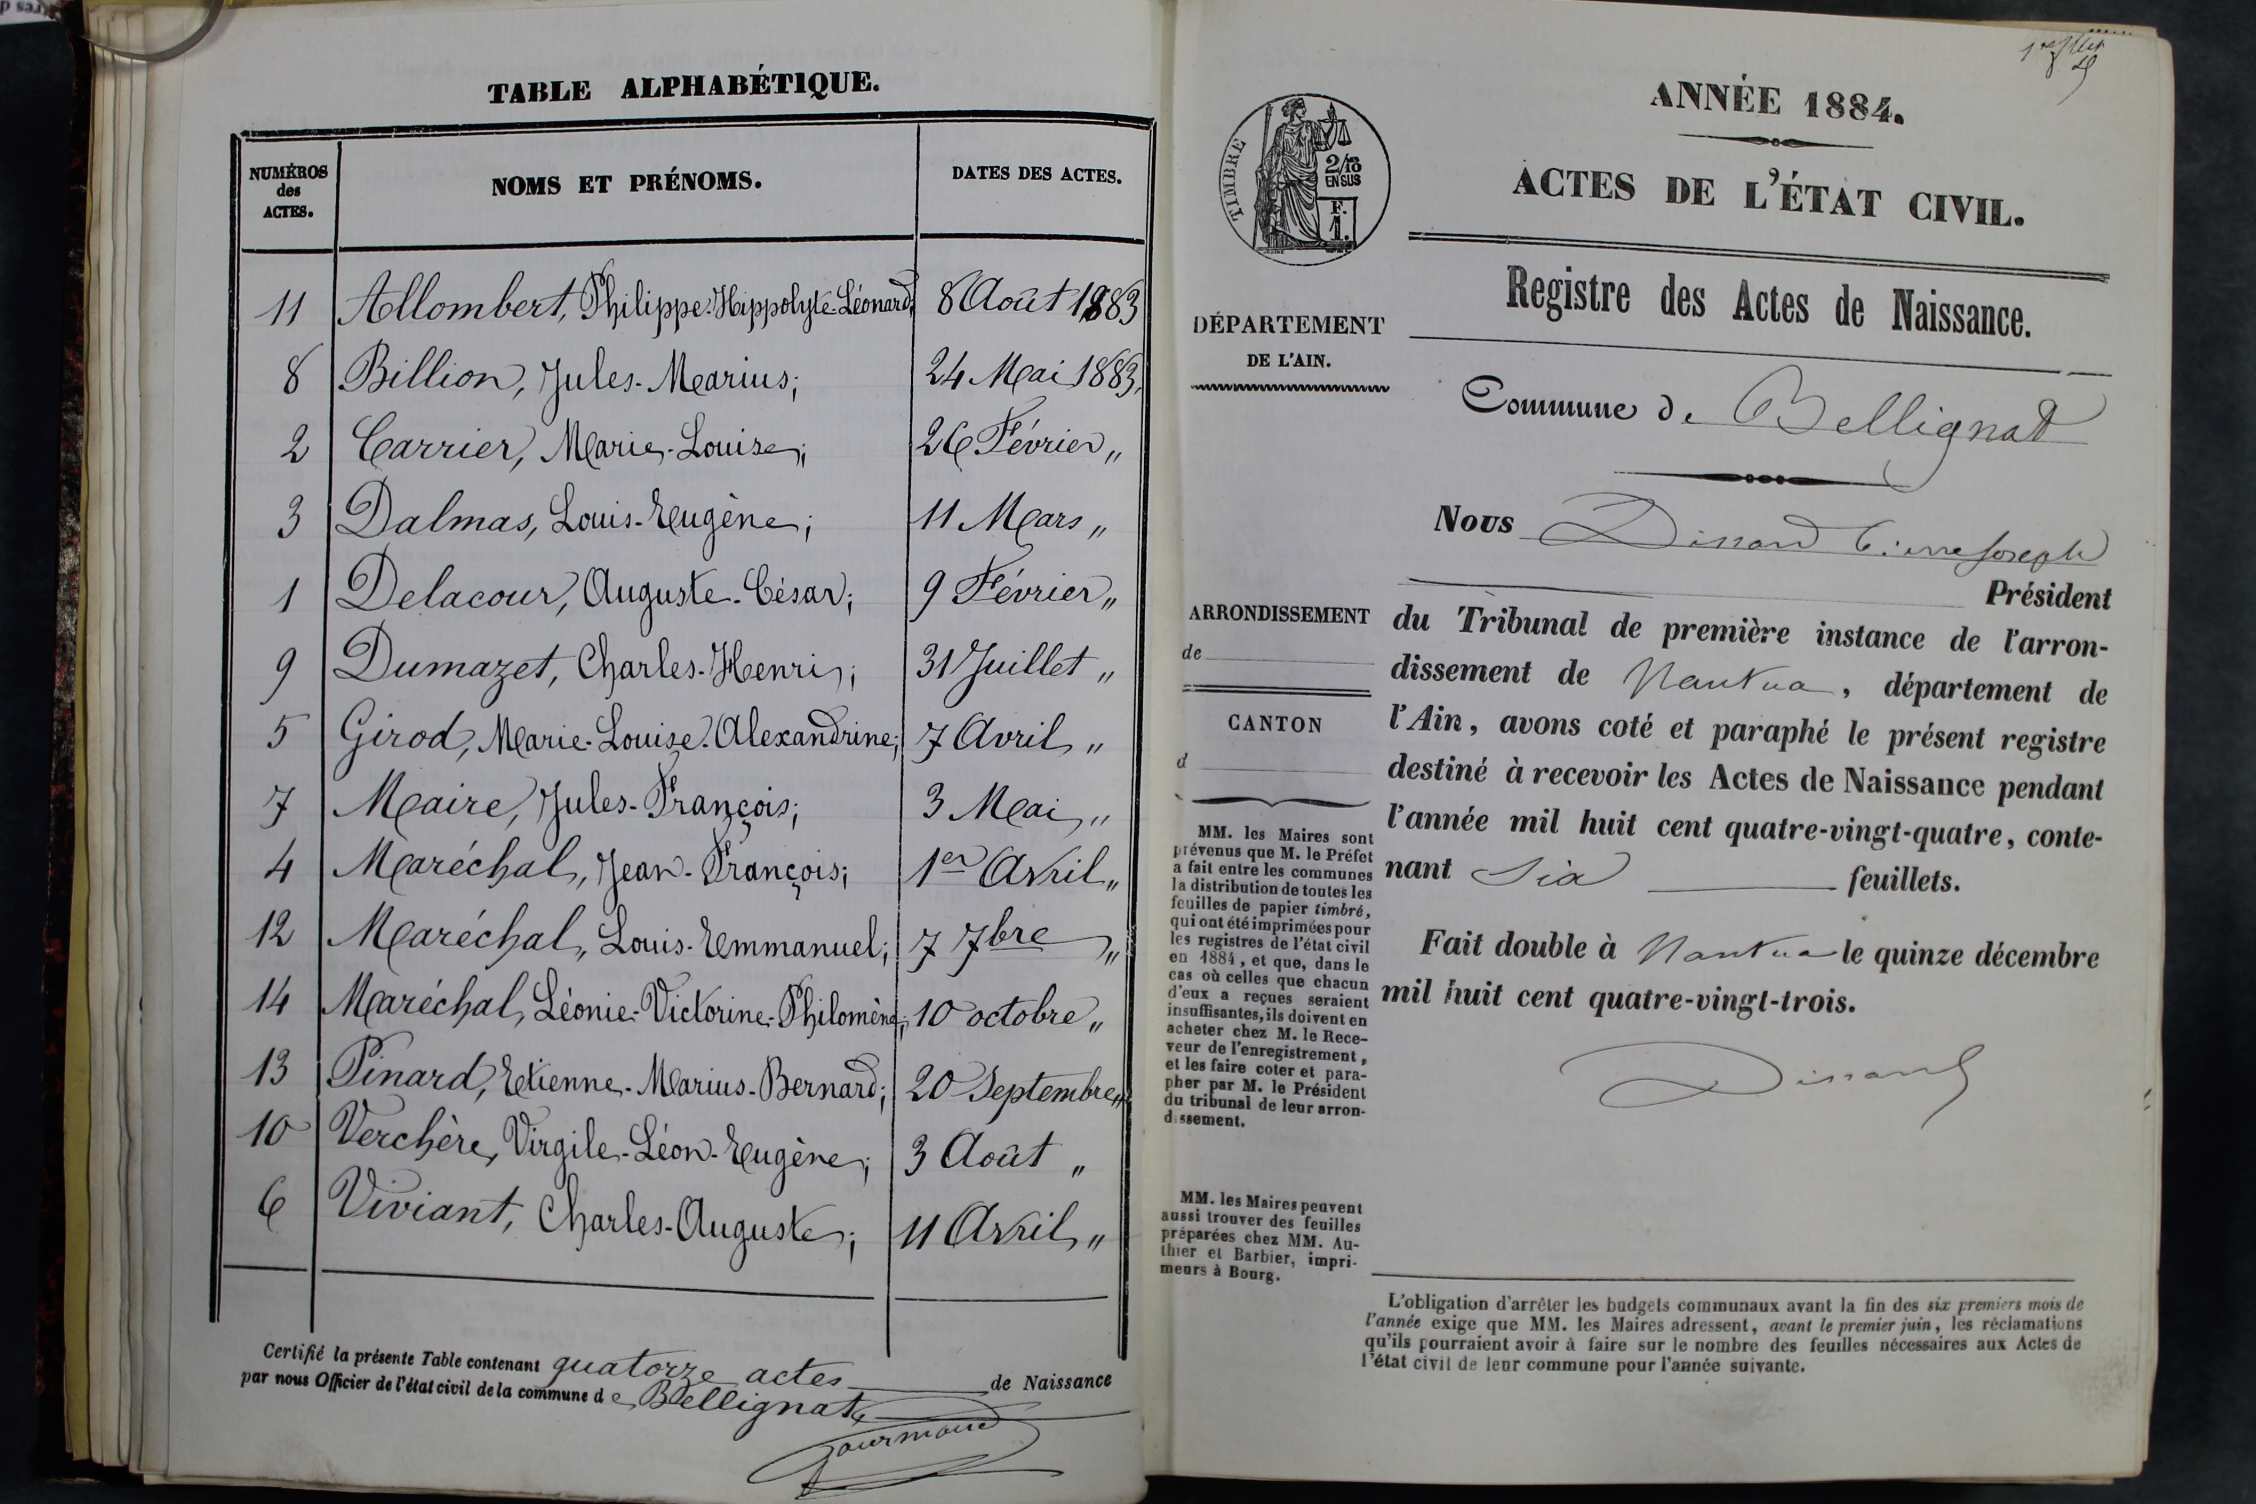 TABLE ALPHABÉTIQUE.
NUMÉROS des ACTES. NOMS ET PRÉNOMS. DATES DES ACTES.
11 Allombert, Philippe-Hippolyte-Léonard; 8 Août 1883
8 Billion, Jules-Marius; 24 Mai 1883,
2 Carrier, Marie-Louise; 26 Février "
3 Dalmas, Louis-Eugène; 11 Mars "
1 Delacour, Auguste-César; 9 Février "
9 Dumazet, Charles-Henri; 31 Juillet "
5 Girod, Marie-Louise-Alexandrine; 7 Avril "
7 Maire, Jules-François; 3 Mai "
4 Maréchal, Jean-François; 1er Avril "
12 Maréchal, Louis-Emmanuel; 7 7bre "
14 Maréchal, Léonie-Victorine-Philomène; 10 octobre "
13 Pinard, Etienne-Marius-Bernard; 20 Septembre "
10 Verchère, Virgile-Léon-Eugène; 3 Août "
6 Viviant, Charles-Auguste; 11 Avril "
Certifié la présente Table contenant quatorze actes de Naissance
par nous Officier de l'état civil de la commune de Bellignat
ANNÉE 1884.
ACTES DE L'ÉTAT CIVIL.
TIMBRE
2/10
EN SUS
F.
1.
Registre des Actes de Naissance.
DÉPARTEMENT
DE L'AIN.
Commune de Bellignat
Nous Joseph
Président
ARRONDISSEMENT
de
CANTON
d
du Tribunal de première instance de l'arron-
dissement de Nantua, département de
l'Ain, avons coté et paraphé le présent registre
destiné à recevoir les Actes de Naissance pendant
l'année mil huit cent quatre-vingt-quatre, conte-
nant Six feuillets.
Fait double à Nantua le quinze décembre
mil huit cent quatre-vingt-trois.
MM. les Maires sont
prévenus que M. le Préfet
a fait entre les communes
la distribution de toutes les
feuilles de papier timbré,
qui ont été imprimées pour
les registres de l'état civil
en 1884, et que, dans le
cas où celles que chacun
d'eux a reçues seraient
insuffisantes, ils doivent en
acheter chez M. le Rece-
veur de l'enregistrement,
et les faire coter et para-
pher par M. le Président
du tribunal de leur arron-
dissement.
MM. les Maires peuvent
aussi trouver des feuilles
préparées chez MM. Au-
thier et Barbier, impri-
meurs à Bourg.
L'obligation d'arrêter les budgets communaux avant la fin des six premiers mois de
l'année exige que MM. les Maires adressent, avant le premier juin, les réclamations
qu'ils pourraient avoir à faire sur le nombre des feuilles nécessaires aux Actes de
l'état civil de leur commune pour l'année suivante.